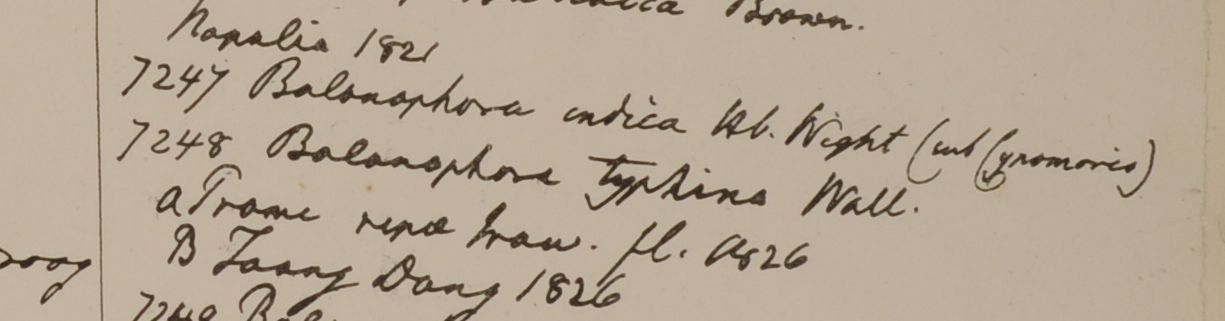 Brown.
Napalia 1821
7247 Balanophora indica Hb. Wight (sub Cynomorio)
7248 Balanophora typhina Wall.
a Prome ripæ Iraw. fl. 1826
B Taong Dong 1826
oong
7249